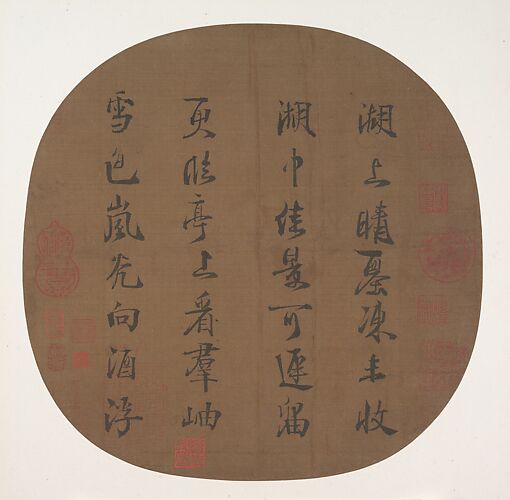 上晴凍未收
湖中佳景可遲留
更臨亭上看羣岫
雪色嵐光向酒浮